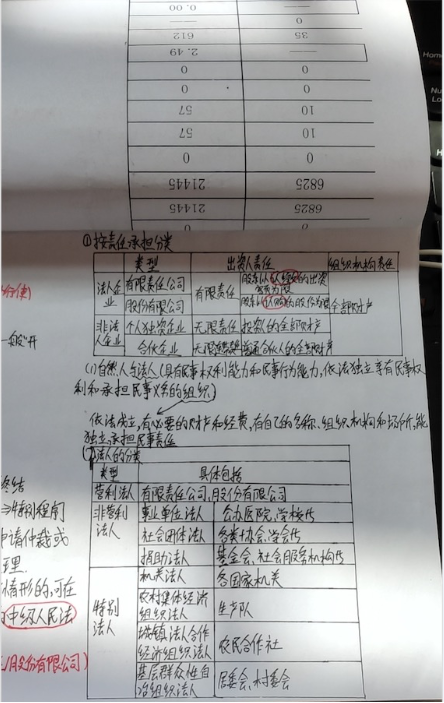 0.00
—
612
35
2.49
—
0
0
0
0
57
10
57
10
0
0
21445
6825
21445
6825
①按责任承担分类
类型 出资人责任 组织机构责任
法人企业 有限责任公司 有限责任 股东以认缴的出资额为限 全部财产
股份有限公司 股东以认购的股份为限
非法人企业 个人独资企业 无限责任 投资人的全部财产
合伙企业 普通合伙人的全部财产
(1)自然人与法人(具有民事权利能力和民事行为能力,依法独立享有民事权
利和承担民事义务的组织)
依法成立,有必要的财产和经费,有自己的名称、组织机构和场所,能
独立承担民事责任
法人的分类
类型 具体包括
营利法人 有限责任公司,股份有限公司
非营利法人 事业单位法人 公办医院,学校等
社会团体法人 各类协会,学会等
捐助法人 基金会,社会服务机构等
特别法人 机关法人 各国家机关
农村集体经济组织法人 生产队
城镇法合作经济组织法人 农民合作社
基层群众性自治组织法人 居委会,村委会
终结
特别程序
申请仲裁或
理
情形的,可在
中级人民法
股份有限公司)